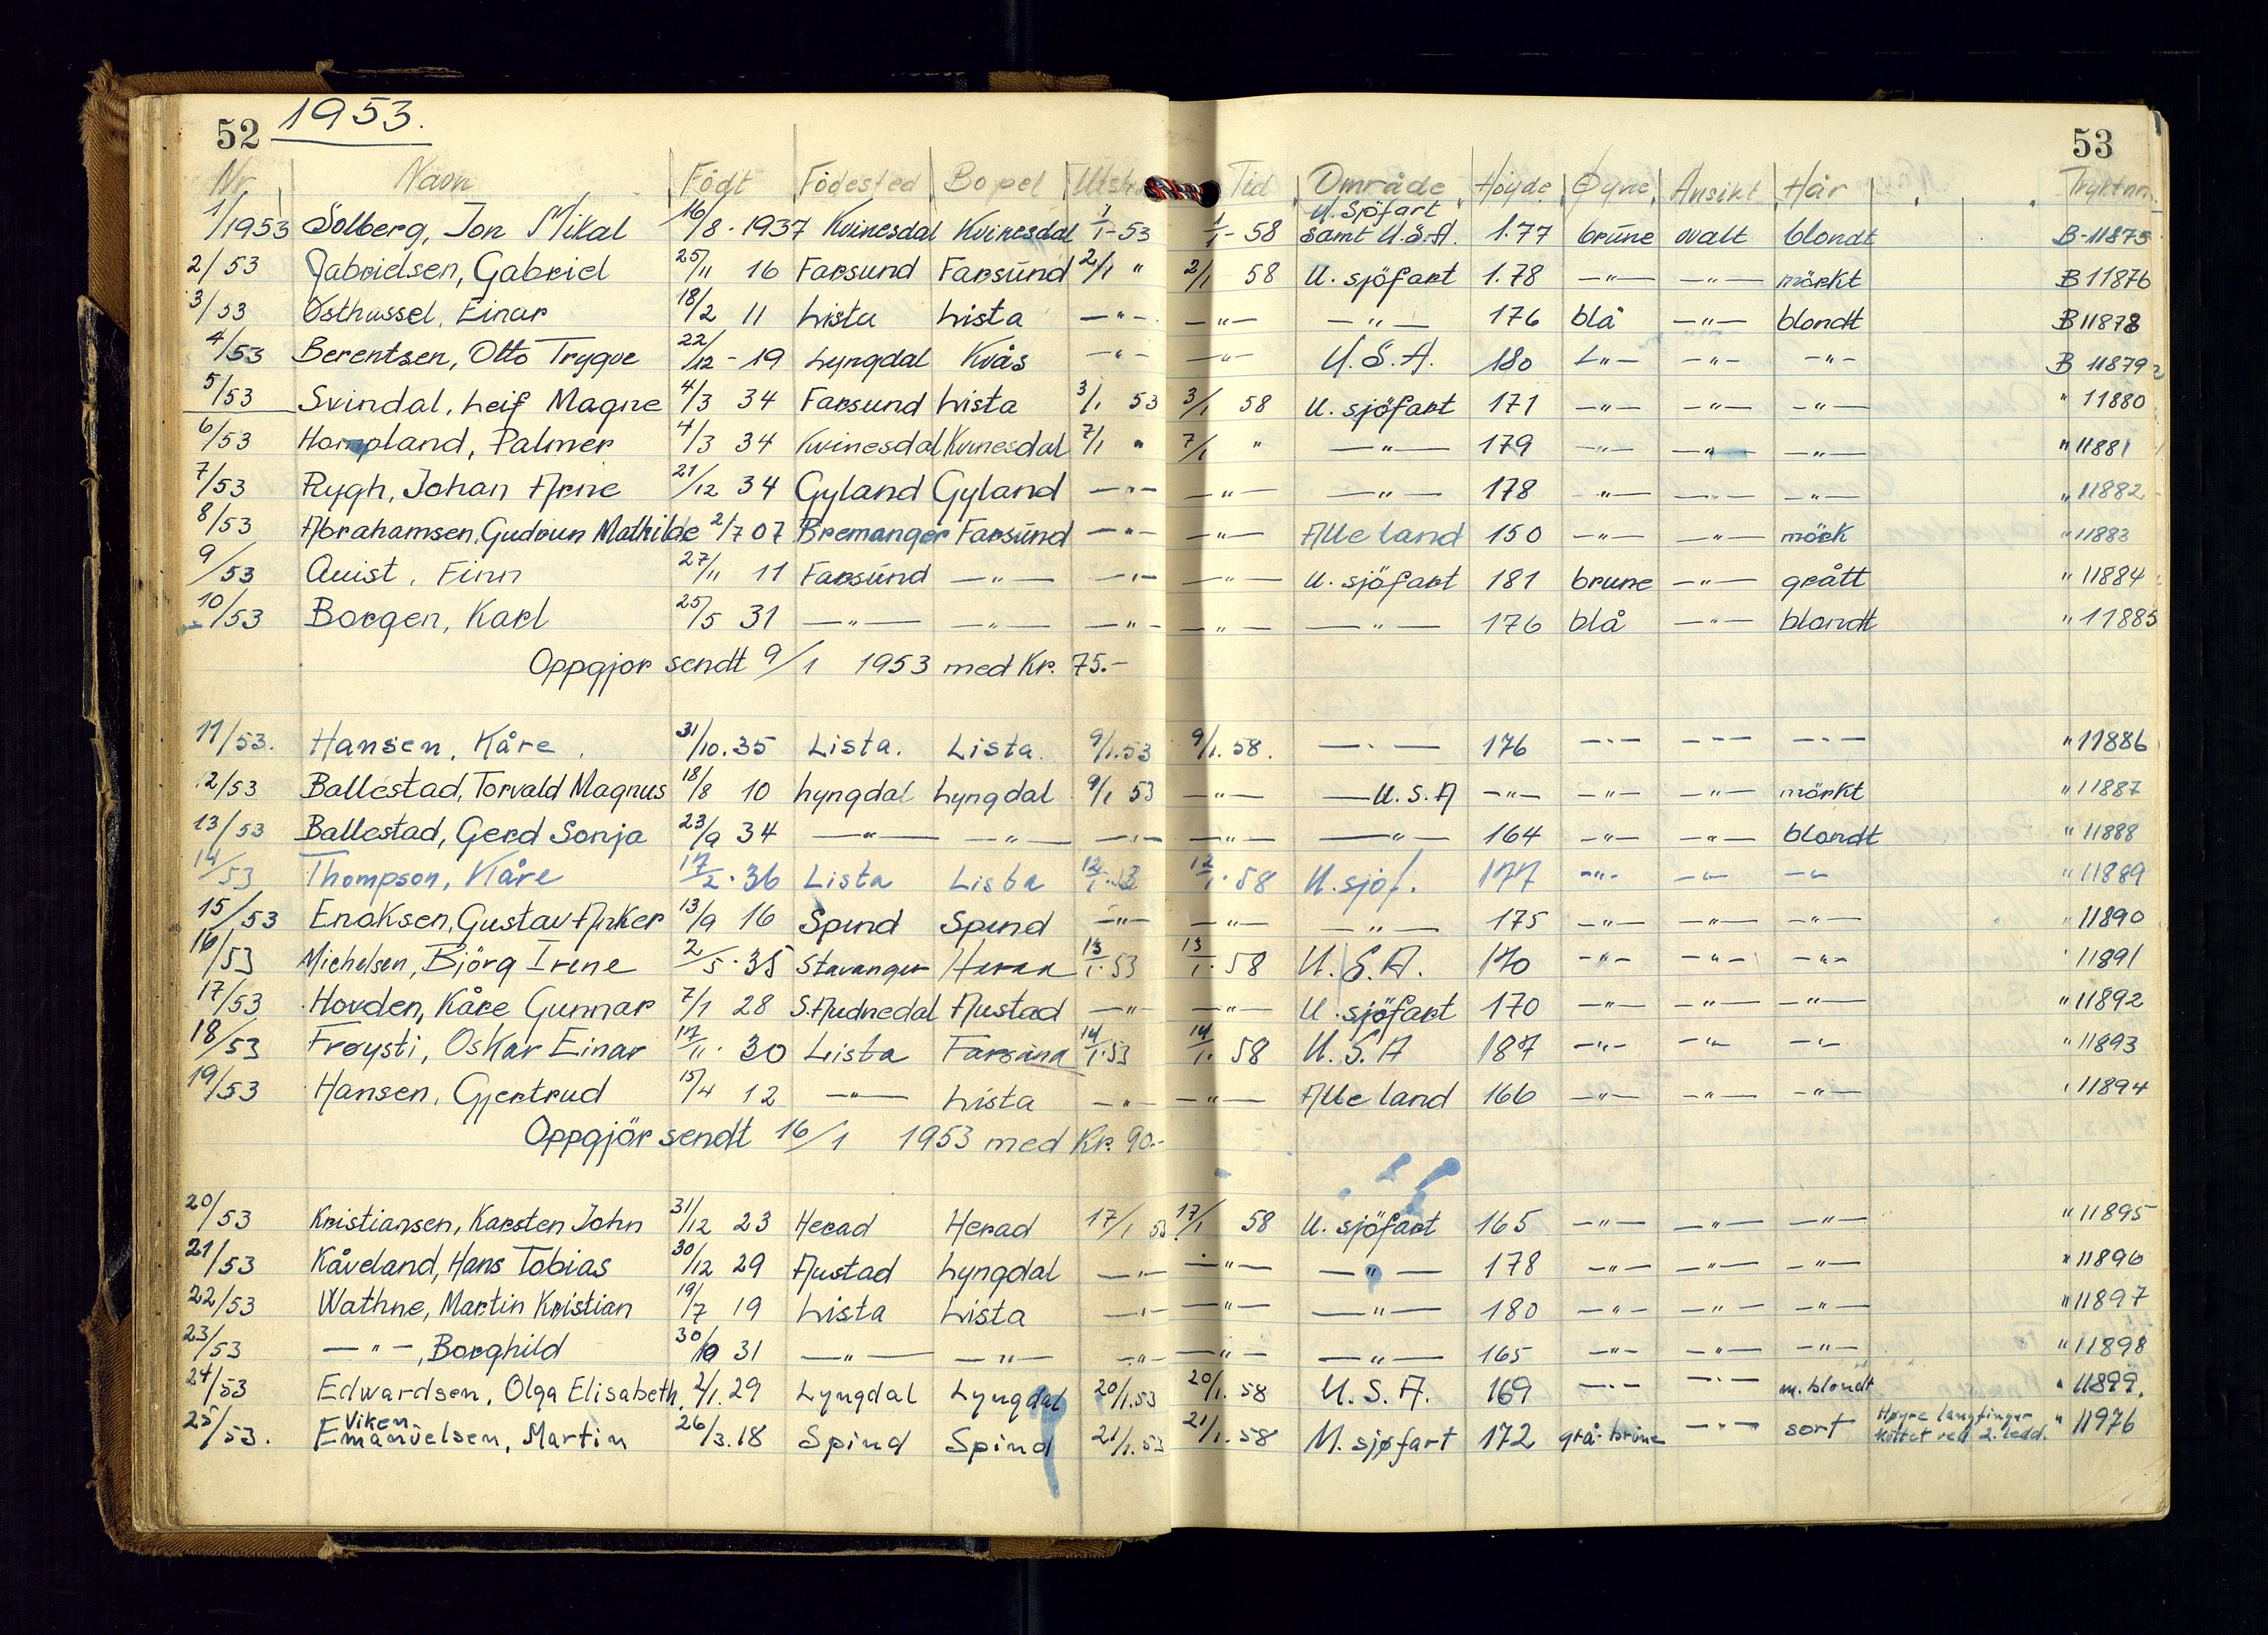 52 1953. 53
Nr Navn Født Födested Bopel Utst. Tid Område Høyde Øyne Ansikt Hår Tryktnr.
1/1953 Solberg, Jon Mikal 16/8 . 1937 Kvinesdal Kvinesdal 1/1 - 53 1/1 - 58 U. Sjöfart samt U.S.A. 1.77 brune ovalt blondt B-11875
2/53 Gabrielsen, Gabriel 25/11 16 Farsund Farsund 2/1 " 2/1 58 U. sjöfart 1.78 —"— —"— mörkt B 11876
3/53 Östhassel, Einar 18/2 11 Lista Lista —"— —"— —"— 176 blå —"— blondt B 11878
4/53 Berentsen, Otto Trygve 22/12 - 19 Lyngdal Kvås —"— —"— U.S.A. 180 —"— —"— —"— B 11879
5/53 Svindal, Leif Magne 4/3 34 Farsund Lista 3/1 53 3/1 58 U. sjöfart 171 —"— —"— —"— " 11880
6/53 Hompland, Palmer 4/3 34 Kvinesdal Kvinesdal 7/1 " 7/1 " —"— 179 —"— —"— —"— " 11881
7/53 Rygh, Johan Arne 21/12 34 Gyland Gyland —"— —"— —"— 178 —"— —"— —"— " 11882
8/53 Abrahamsen, Gudrun Mathilde 2/7 07 Bremanger Farsund —"— —"— Alle land 150 —"— —"— mörk " 11883
9/53 Quist, Finn 27/11 11 Farsund —"— —"— —"— U. sjöfart 181 brune —"— grått " 11884
10/53 Borgen, Karl 25/5 31 —"— —"— —"— —"— —"— 176 blå —"— blondt " 11885
Oppgjor sendt 9/1 1953 med Kr. 75.-
11/53. Hansen, Kåre 31/10. 35 Lista. Lista. 9/1. 53 9/1. 58. —"— 176 —"— —"— —"— " 11886
12/53 Ballestad, Torvald Magnus 18/8 10 Lyngdal Lyngdal 9/1 53 —"— — U.S.A —"— —"— —"— mörkt " 11887
13/53 Ballestad, Gerd Sonja 23/9 34 —"— —"— —"— —"— —"— 164 —"— —"— blondt " 11888
14/53 Thompson, Kåre 17/2 . 36 Lista Lista 12/1 . 53 12/1 . 58 U. sjöf. 177 —"— —"— —"— " 11889
15/53 Enoksen, Gustav Anker 13/9 16 Spind Spind —"— —"— —"— 175 —"— —"— —"— " 11890
16/53 Michelsen, Björg Irene 2/5 . 35 Stavanger Herad 13/1 . 53 13/1 . 58 U.S.A. 170 —"— —"— —"— " 11891
17/53 Hovden, Kåre Gunnar 7/1 28 S. Audnedal Austad —"— —"— U. sjöfart 170 —"— —"— —"— " 11892
18/53 Frøysti, Oskar Einar 17/11 . 30 Lista Farsund 14/1 . 53 14/1 . 58 U.S.A 187 —"— —"— —"— " 11893
19/53 Hansen, Gjertrud 15/4 12 —"— Lista —"— —"— Alle land 166 —"— —"— —"— " 11894
Oppgjör sendt 16/1 1953 med Kr. 90.-
20/53 Kristiansen, Karsten John 31/12 23 Herad Herad 17/1 53 17/1 58 U. sjöfart 165 —"— —"— —"— " 11895
21/53 Kåveland, Hans Tobias 30/12 29 Austad Lyngdal —"— —"— —"— 178 —"— —"— —"— " 11896
22/53 Wathne, Martin Kristian 19/7 19 Lista Lista —"— —"— —"— 180 —"— —"— —"— " 11897
23/53 —"—, Borghild 30/10 31 —"— —"— —"— —"— —"— 165 —"— —"— —"— " 11898
24/53 Edwardsen, Olga Elisabeth, 2/1. 29 Lyngdal Lyngdal 20/1. 53 20/1. 58 U.S.A. 169 —"— —"— m. blondt " 11899.
25/53. Viken Emanuelsen, Martin 26/3. 18 Spind Spind 21/1. 53 21/1. 58 U. sjøfart 172 grå-brune —"— sort Høyre langfinger kuttet ved 2. ledd. " 11976